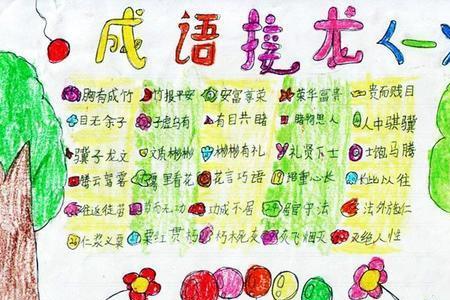 成语接龙<一>
胸有成竹 竹报平安 安富尊荣 荣华富贵 贵而贱目
目无余子 子虚乌有 有目共睹 睹物思人 人中骐骥
骥子龙文 文质彬彬 彬彬有礼 礼贤下士 士饱马腾
腾云驾雾 雾里看花 花言巧语 语重心长 长此以往
往返徒劳 劳而无功 功成不居 居官守法 法外施仁
仁浆义粟 粟红贯朽 朽木死灰 灰飞烟灭 灭绝人性